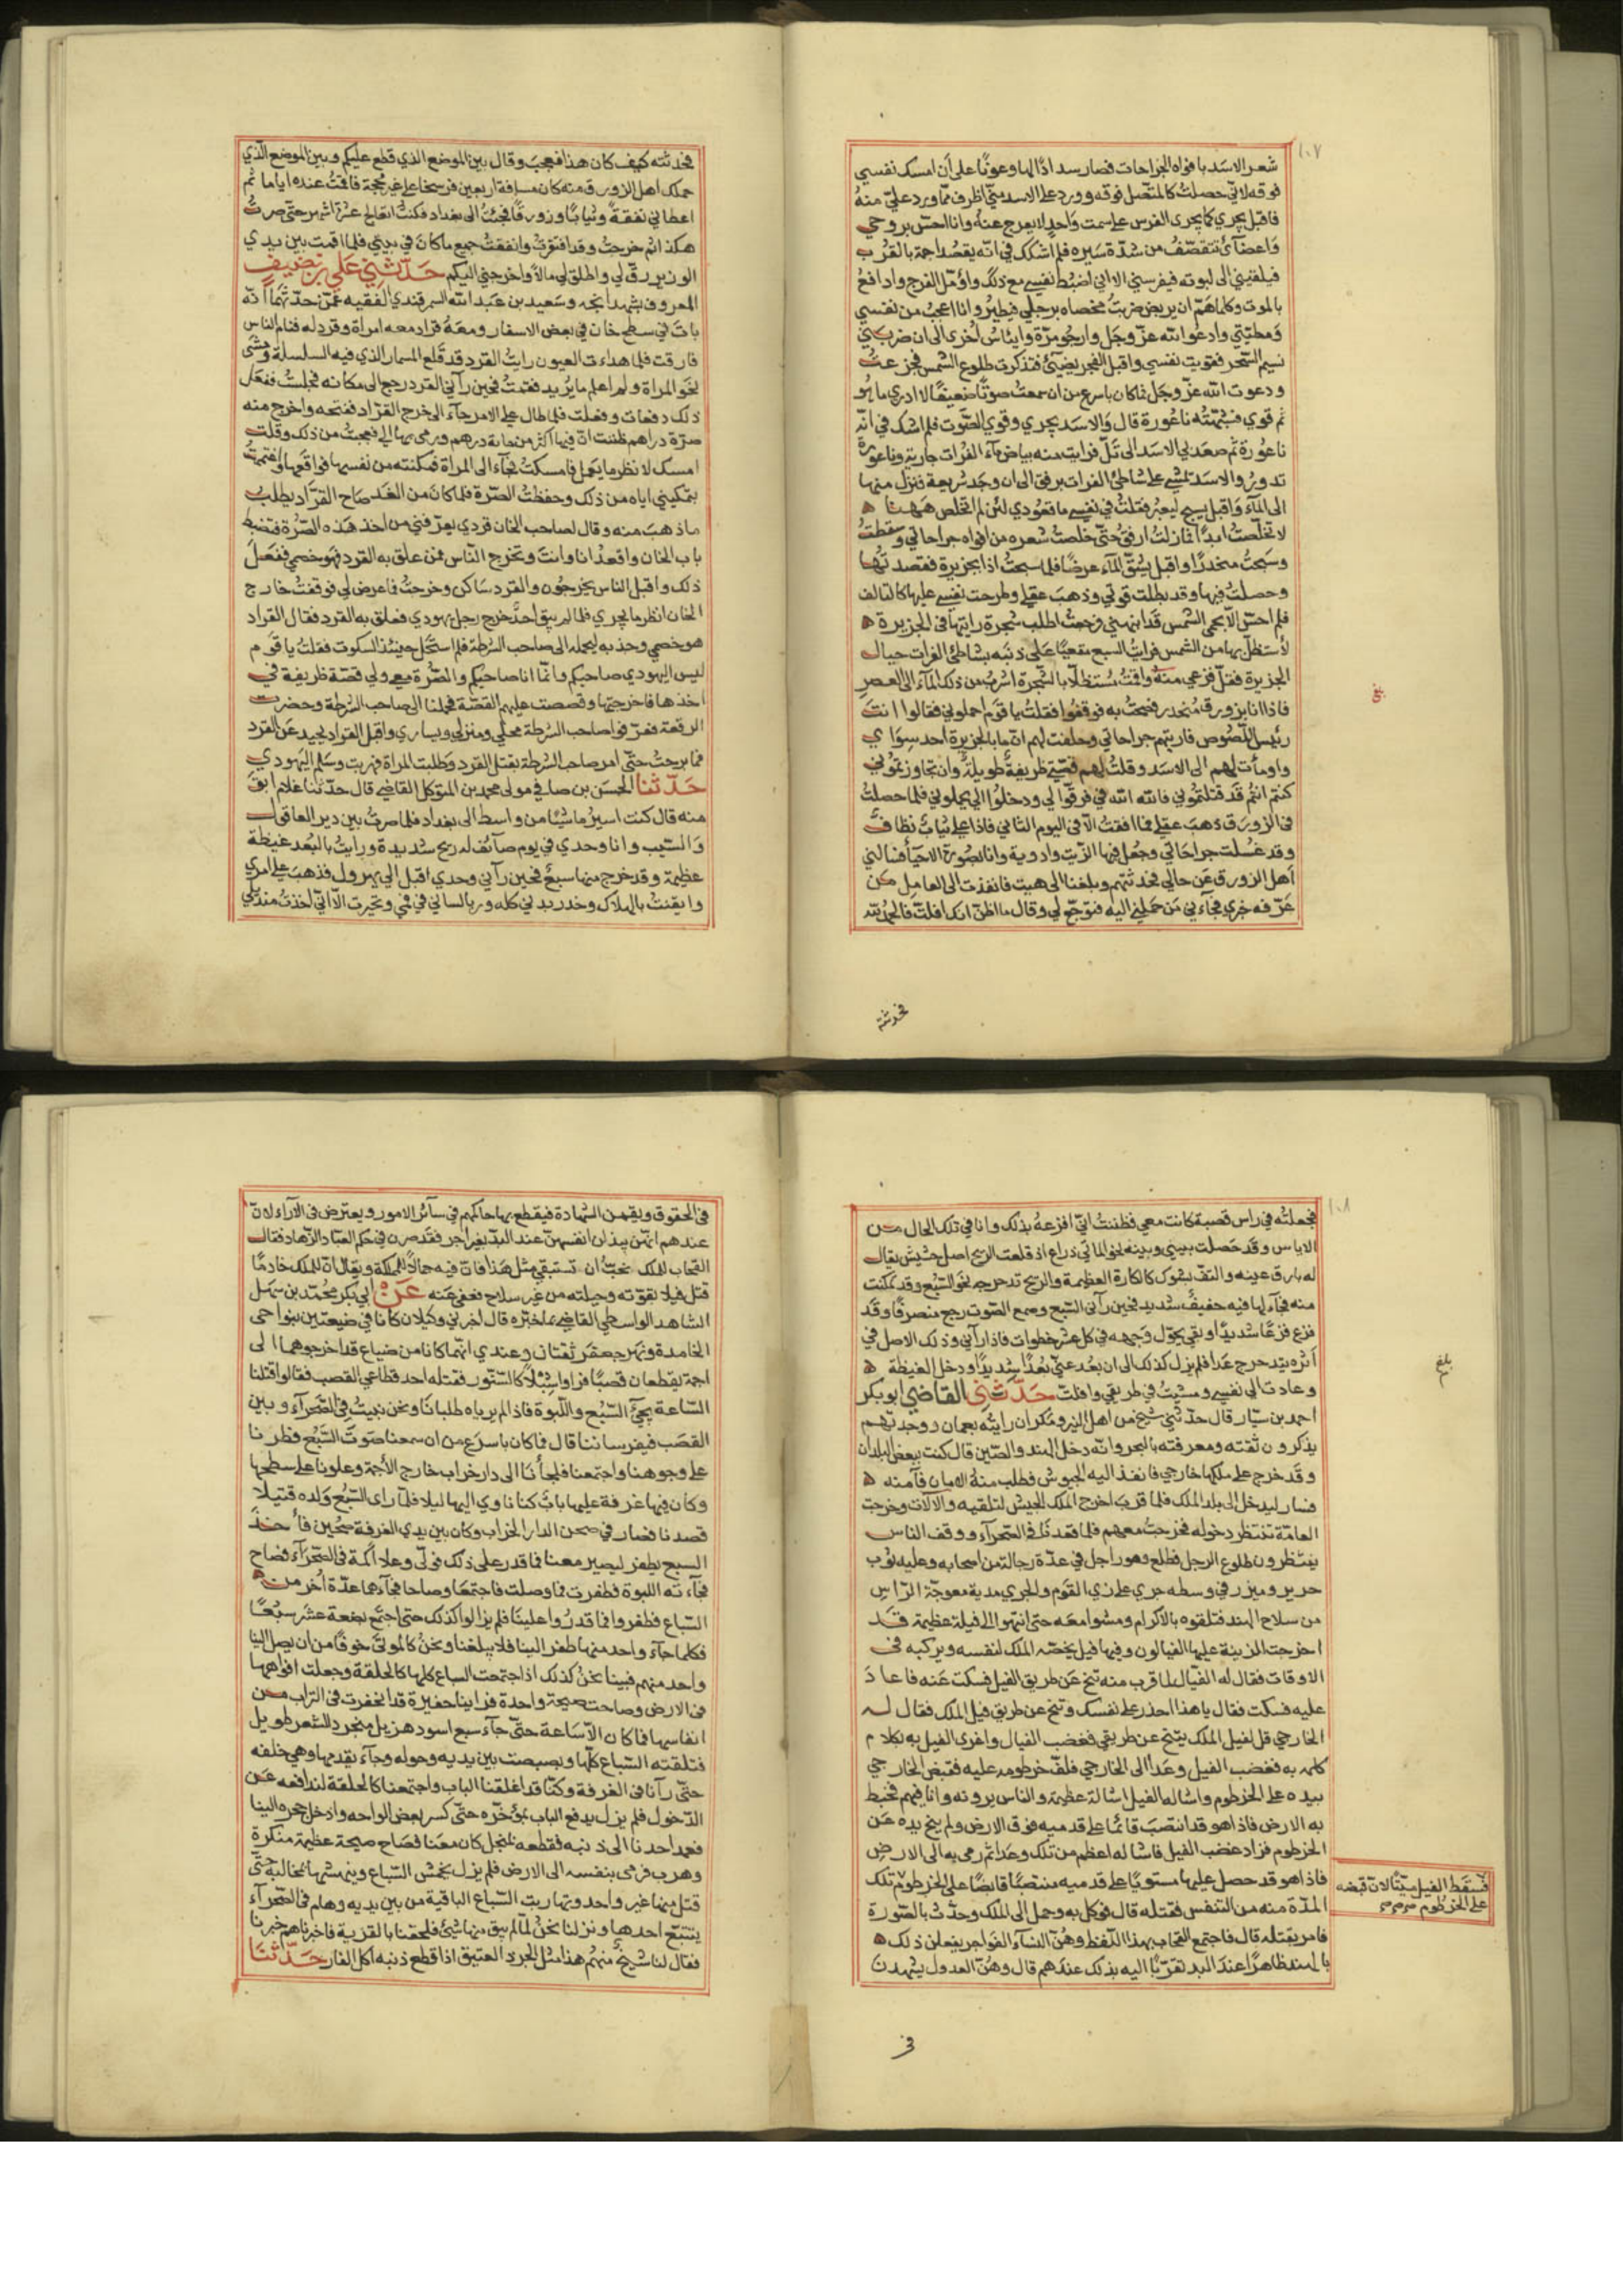 ١٠٧
شعر الاسد بافواه الجراحات فصار سدادًا لها وعونًا على أن امسك نفسي
فوقه لاني حصلت كالملتصل فوقه وورد على الاسد مني اظرف مما ورد علي منه
فاقبل يجري كما يجري الفرس على سمت واحد لا يعرج عنه وانا احس بروحي
واعضائي تتقصف من شدة سيره فلم اشكك في انه يقصد اجمة بالقرب
فيلقيني الى لبوته فيفرسني الا اني اضبط نفسي مع ذلك واؤمل الفرج وادافع
بالموت وكلما هم ان يربض ضربت مخصاه برجلي فيطير وانا اعجب من نفسي
ومطيتي وادعوا الله عز وجل وارجو مرة وايئاس اخرى الى ان ضربني
نسيم السحر فقويت نفسي واقبل الفجر يضيئ فتذكرت طلوع الشمس فجزعت
ودعوت الله عز وجل فما كان باسرع من ان سمعت صوتًا ضعيفًا لا ادري ما هو
ثم قوي فشبهته ناعورة قال والاسد يجري وقوي الصوت فلم اشك في انه
ناعورة ثم صعد بي الاسد الى تل فرايت منه بياض ماء الفرات جارية وناعورة
تدور والاسد تمشي على شاطئ الفرات برفق الى ان وجد شريعة فنزل منها
الى الماء واقبل يسبح ليعبر فقلت في نفسي ما قعودي لئن لم اتخلص ههنا
لا تخلصت ابدًا فما زلت ارفق حتى خلصت شعره من افواه جراحاتي وسقطت
وسبحت منحدرًا واقبل يشق الماء عرضًا فلما سبحت اذا بجزيرة فقصدتها
وحصلت فيها وقد بطلت قوتي وذهب عقلي وطرحت نفسي عليها كالتالف
فلم احس الا بحمى الشمس قد انبهتني فرجعت اطلب شجرة رايتها في الجزيرة
لأستظل بها من الشمس فرايت السبع مقعيًا على ذنبه بشاطئ الفرات حيال
الجزيرة فقل فزعي منه واقمت مستظلًا بالشجرة اشرب من ذلك الماء الى العصر
فاذا انا بزورق منحدر فصحت به فوقفوا فقلت يا قوم احملوني فقالوا انت
رئيس اللصوص فاريتهم جراحاتي وحلفت لهم ان ما بالجزيرة احد سواي
واومأت لهم الى الاسد وقلت لهم قصتي ظريفة طويلة وان تجاوزتموني
كنتم انتم قد قتلتموني فالله الله في فرقوا لي ودخلوا الي يحملوني فلما حصلت
في الزورق ذهب عقلي فما افقت الا في اليوم الثاني فاذا علي ثياب نظاف
وقد غسلت جراحاتي وجعل فيها الزيت وادوية وانا بصورة الاحياء فسالني
اهل الزورق عن حالي فحدثتهم وبلغنا الى هيت فانفذت الى العامل من
عرفه خبري فجاءني من حملني اليه فتوجع لي وقال ما اظن انك افلت فالحمد لله
بلغ
فحدثته
فحدثته كيف كان هذا فعجب وقال بين الموضع الذي قطع عليكم وبين الموضع الذي
حملك اهل الزورق منه كان مسافة اربعين فرسخا على غير محجة فاقمت عنده اياما ثم
اعطاني نفقة وثيابًا وزورقًا فجئت الى بغداد فكنت اتعالج عشرة اشهر حتى صرت
هكذا ثم خرجت وقد افتقرت وانفقت جميع ما كان في بيتي فلما اقمت بين يدي
الوزير رق لي واطلق لي مالا واخرجني اليكم حدثني علي بن نضيف
المعروف بشهدانجه وسعيد بن عبد الله السمرقندي الفقيه عمن حدثهما انه
بات في سطح خان في بعض الاسفار ومعه قراد معه امراة وقرد له فنام الناس
فارقت فلما هداءت العيون رايت القرد قد قلع المسمار الذي فيه السلسلة ومشى
نحو المراة ولم اعلم ما يريد فقمت فحين رآني القرد رجع الى مكانه فجلست ففعل
ذلك دفعات وفعلت فلما طال عليه الامر جاء الى خرج القراد ففتحه واخرج منه
صرة دراهم ظننت ان فيها اكثر من ماية درهم ورمى بها الي فعجبت من ذلك وقلت
امسك لانظر ما يعمل فامسكت فجاء الى المراة فمكنته من نفسها فواقعها واغتممت
بتمكيني اياه من ذلك وحفظت الصرة فلما كان من الغد صاح القراد يطلب
ما ذهب منه وقال لصاحب الخان قردي يعرفني من اخذ هذه الصرة فتضبط
باب الخان واقعد انا وانت وتخرج الناس فمن علق به القرد فهو خصمي ففعل
ذلك واقبل الناس يخرجون والقرد ساكن وخرجت فاعرض لي فوقفت خارج
الخان انظر ما يجري فلما لم يبق احد خرج رجل يهودي فعلق به القرد فقال القراد
هو خصمي وجذبه ليحمله الى صاحب الشرطة فلم استحل حينئذ السكوت فقلت يا قوم
ليس اليهودي صاحبكم وانما انا صاحبكم والصرة معي ولي قصة ظريفة في
اخذها فاخرجتها وقصصت عليهم القصة فحملنا الى صاحب الشرطة وحضرت
الرفقة فعرفوا صاحب الشرطة محلي ومنزلي ويساري واقبل القراد يحيد عن القرد
فما برحت حتى امر صاحب الشرطة بقتل القرد وطلبت المراة فهربت وسلم اليهودي
حدثنا الحسن بن صافي مولى محمد بن المتوكل القاضي قال حدثنا غلام ابق
منه قال كنت اسير ماشيًا من واسط الى بغداد فلما صرت بين دير العاقول
والسيب وانا وحدي في يوم صائف له ريح شديدة ورايت بالبعد غيظة
عظيمة وقد خرج منها سبع فحين رآني وحدي اقبل الي يهرول فذهب علي امري
وايقنت بالهلاك وخدر بدني كله وربا لساني في فمي وتحيرت الا اني اخذت منديلي
١٠٨
فجعلته في راس قصبة كانت معي فظننت اني افزعه بذلك وانا في تلك الحال من
الاياس وقد حصلت بيني وبينه نحو المائتي ذراع اذ قلعت الريح اصل حشيش يقال
له بارق عينه والتف بشوك كالكارة العظيمة والريح تدحرجه نحو السبع وقد تمكنت
منه فجاء لها فيه حفيف شديد فحين رآى السبع وسمع الصوت رجع منصرفًا وقد
فزع فزعًا شديدًا وبقي يحول وجهه في كل عشر خطوات فاذا رآني وذلك الاصل في
اثره يتدحرج عدا فلم يزل كذلك الى ان بعد عني بعدًا شديدًا ودخل الغيظة
وعادت الى نفسي ومشيت في طريقي وافلت حدثني القاضي ابو بكر
احمد بن سيار قال حدثني شيخ من اهل التيز ومكران رايته بعمان ووجدتهم
يذكرون ثقته ومعرفته بالبحر وانه دخل الهند والصين قال كنت ببعض البلدان
وقد خرج على ملكها خارجي فانفذ اليه الجيوش فطلب منه الامان فآمنه
فسار ليدخل الى بلد الملك فلما قرب اخرج الملك الجيش لتلقيه والآلات وخرجت
العامة تنتظر دخوله فخرجت معهم فلما قعدنا في الصحراء ووقف الناس
ينتظرون طلوع الرجل فطلع وهو راجل في عدة رجالة من اصحابه وعليه ثوب
حرير وميزر في وسطه جري على زي القوم والجري مدية معوجة الراس
من سلاح الهند فتلقوه بالاكرام ومشوا معه حتى انتهوا الى فيلة عظيمة قد
اخرجت للزينة عليها الفيالون وفيها فيل يختصه الملك لنفسه ويركبه في
الاوقات فقال له الفيال لما قرب منه تنح عن طريق الفيل فسكت عنه فاعاد
عليه فسكت فقال يا هذا احذر على نفسك وتنح عن طريق فيل الملك فقال له
الخارجي قل لفيل الملك يتنح عن طريقي فغضب الفيال واغرى الفيل به بكلام
كلمه به فغضب الفيل وعدا الى الخارجي فلف خرطومه عليه فقبض الخارجي
بيده على الخرطوم واشاله الفيل اشالة عظيمة والناس يرونه وانا فيهم فخبط
به الارض فاذا هو قد انتصب قائما على قدميه فوق الارض ولم ينح يده عن
الخرطوم فزاد غضب الفيل فاشاله اعظم من تلك وعدا ثم رمى به الى الارض
فاذا هو قد حصل عليها مستويًا على قدميه منتصبًا قابضًا على الخرطوم تلك
المدة منه من التنفس فقتله قال فوكل به وحمل الى الملك وحدث بالصورة
فامر بقتله قال فاجتمع القحاب بهذا اللفظ وهن النساء الفواجر يفعلن ذلك
بالهند ظاهرًا عند البد تقربًا اليه بذلك عندهم قال وهن العدول يشهدن
فسقط الفيل ميتًا لان قبضه
على الخرطوم
بلغ
في
في الحقوق ويقمن الشهادة فيقطع بها حاكمهم في سائر الامور ويعترض في الآراء لان
عندهم انهن يبذلن انفسهن عند البد بغير اجر فقد صرن في حكم العباد الزهاد فقال
القحاب للملك نحب ان تستبقي مثل هذا فان فيه جمالًا للمملكة ويقال ان للملك خادمًا
قتل فيلا بقوته وحيلته من غير سلاح فعفي عنه عن ابي بكر محمد بن سهل
الشاهد الواسطي القاضي بما خبره قال اخبرني وكيلان كانا في ضيعتين بنواحي
الجامدة ونهر جعفر ثقتان وعندي انهما كانا من ضياع قد اخرجوهما الى
اجمة يقطعان قصبًا فراوا شبلًا كالسنور فقتله احد قطاعي القصب فقالوا قتلنا
الساعة يجيء السبع واللبوة فاذا لم يرياه طلبانا ونحن نبيت في الصحراء وبين
القصب فيفرساننا قال فما كان باسرع من ان سمعنا صوت السبع فطرنا
على وجوهنا واجتمعنا فلجأنا الى دار خراب خارج الأجمة وعلونا على سطحها
وكان فيها غرفة عليها باب كنا ناوي اليها ليلا فلما راى السبع ولده قتيلًا
قصدنا فصار في صحن الدار الخراب وكان بين يدي الغرفة صحين فأخذ
السبع يطفر ليصير معنا فما قدر على ذلك فولى وعلا اكمة في الصحراء فصاح
فجاءته اللبوة فطفرت فما وصلت فاجتمعا وصاحا فجاءهما عدة اخر من
السباع فطفروا فما قدروا علينا فلم يزالوا كذلك حتى اجتمع بضعة عشر سبعًا
فكلما جاء واحد منها طفر الينا فلا يبلغنا ونحن كالموتى خوفًا من ان يصل الينا
واحد منهم فبينا نحن كذلك اذ اجتمعت السباع كلها كالحلقة وجعلت افواهها
في الارض وصاحت صيحة واحدة فراينا حفيرة قد انحفرت في التراب من
انفاسها فما كان الا ساعة حتى جاء سبع اسود هزيل منجرد الشعر طويل
فتلقته السباع كلها وبصبصت بين يديه وحوله وجاء يقدمها وهي خلفه
حتى رآنا في الغرفة وكنا قد اغلقنا الباب واجتمعنا كالحلقة لندافعه عن
الدخول فلم يزل يدفع الباب بمؤخره حتى كسر بعض الواحه وادخل عجزه الينا
فعمد احدنا الى ذنبه فقطعه بمنجل كان معنا فصاح صيحة عظيمة منكرة
وهرب فرمى بنفسه الى الارض فلم يزل يخمش السباع وينهشها بمخالبه حتى
قتل منها غير واحد وتهاربت السباع الباقية من بين يديه وهام في الصحراء
يتتبع احدها ونزلنا نحن لما لم يبق منها شئ فلحقنا بالقرية فاخبرناهم خبرنا
فقال لنا شيخ منهم هذا مثل الجرد العتيق اذا قطع ذنبه اكل الفار حدثنا